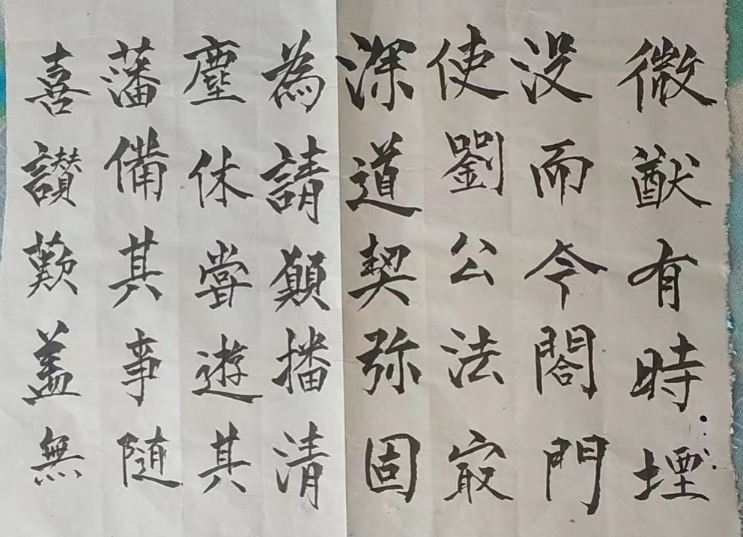 微猷有時堙
没而今閤門
使劉公法㝡
深道契弥固
為請願播清
塵休嘗遊其
藩備其事随
喜讃歎盖無